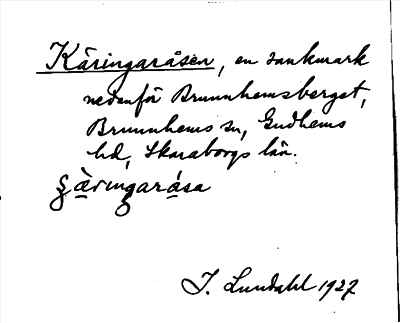 Käringaråsen, en sankmark
nedanför Brunnhemsberget,
Brunnhems sn, Gudhems
hd, Skaraborgs län.
ʂä̀ringarása
I. Lundahl 1927